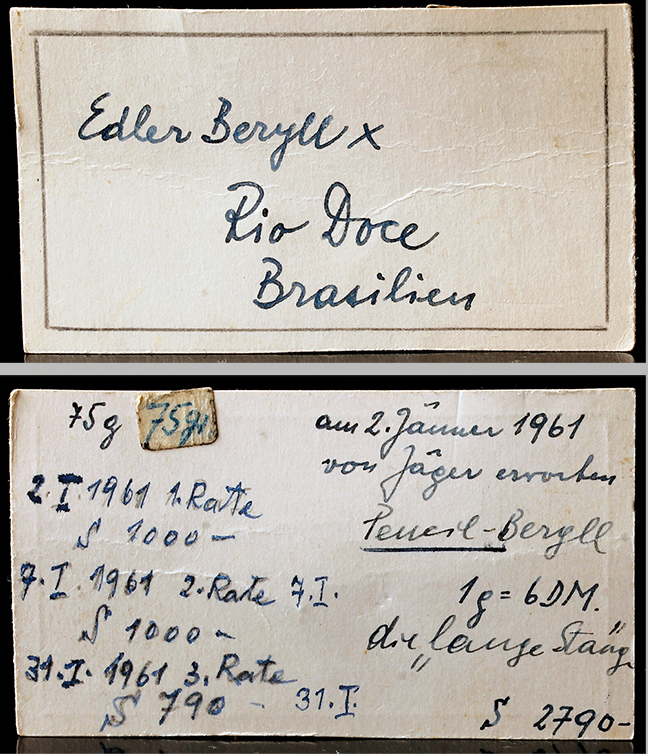 Edler Beryll x
Rio Doce
Brasilien
75g 75gr.
2.I.1961 1.Rate
S 1000–
7.I.1961 2.Rate 7.I.
S 1000–
31.I.1961 3.Rate
S 790– 31.I.
am 2. Jänner 1961
von Jäger erworben
Pencil-Beryll
1g = 6DM.
die „lange Stang"
S 2790–